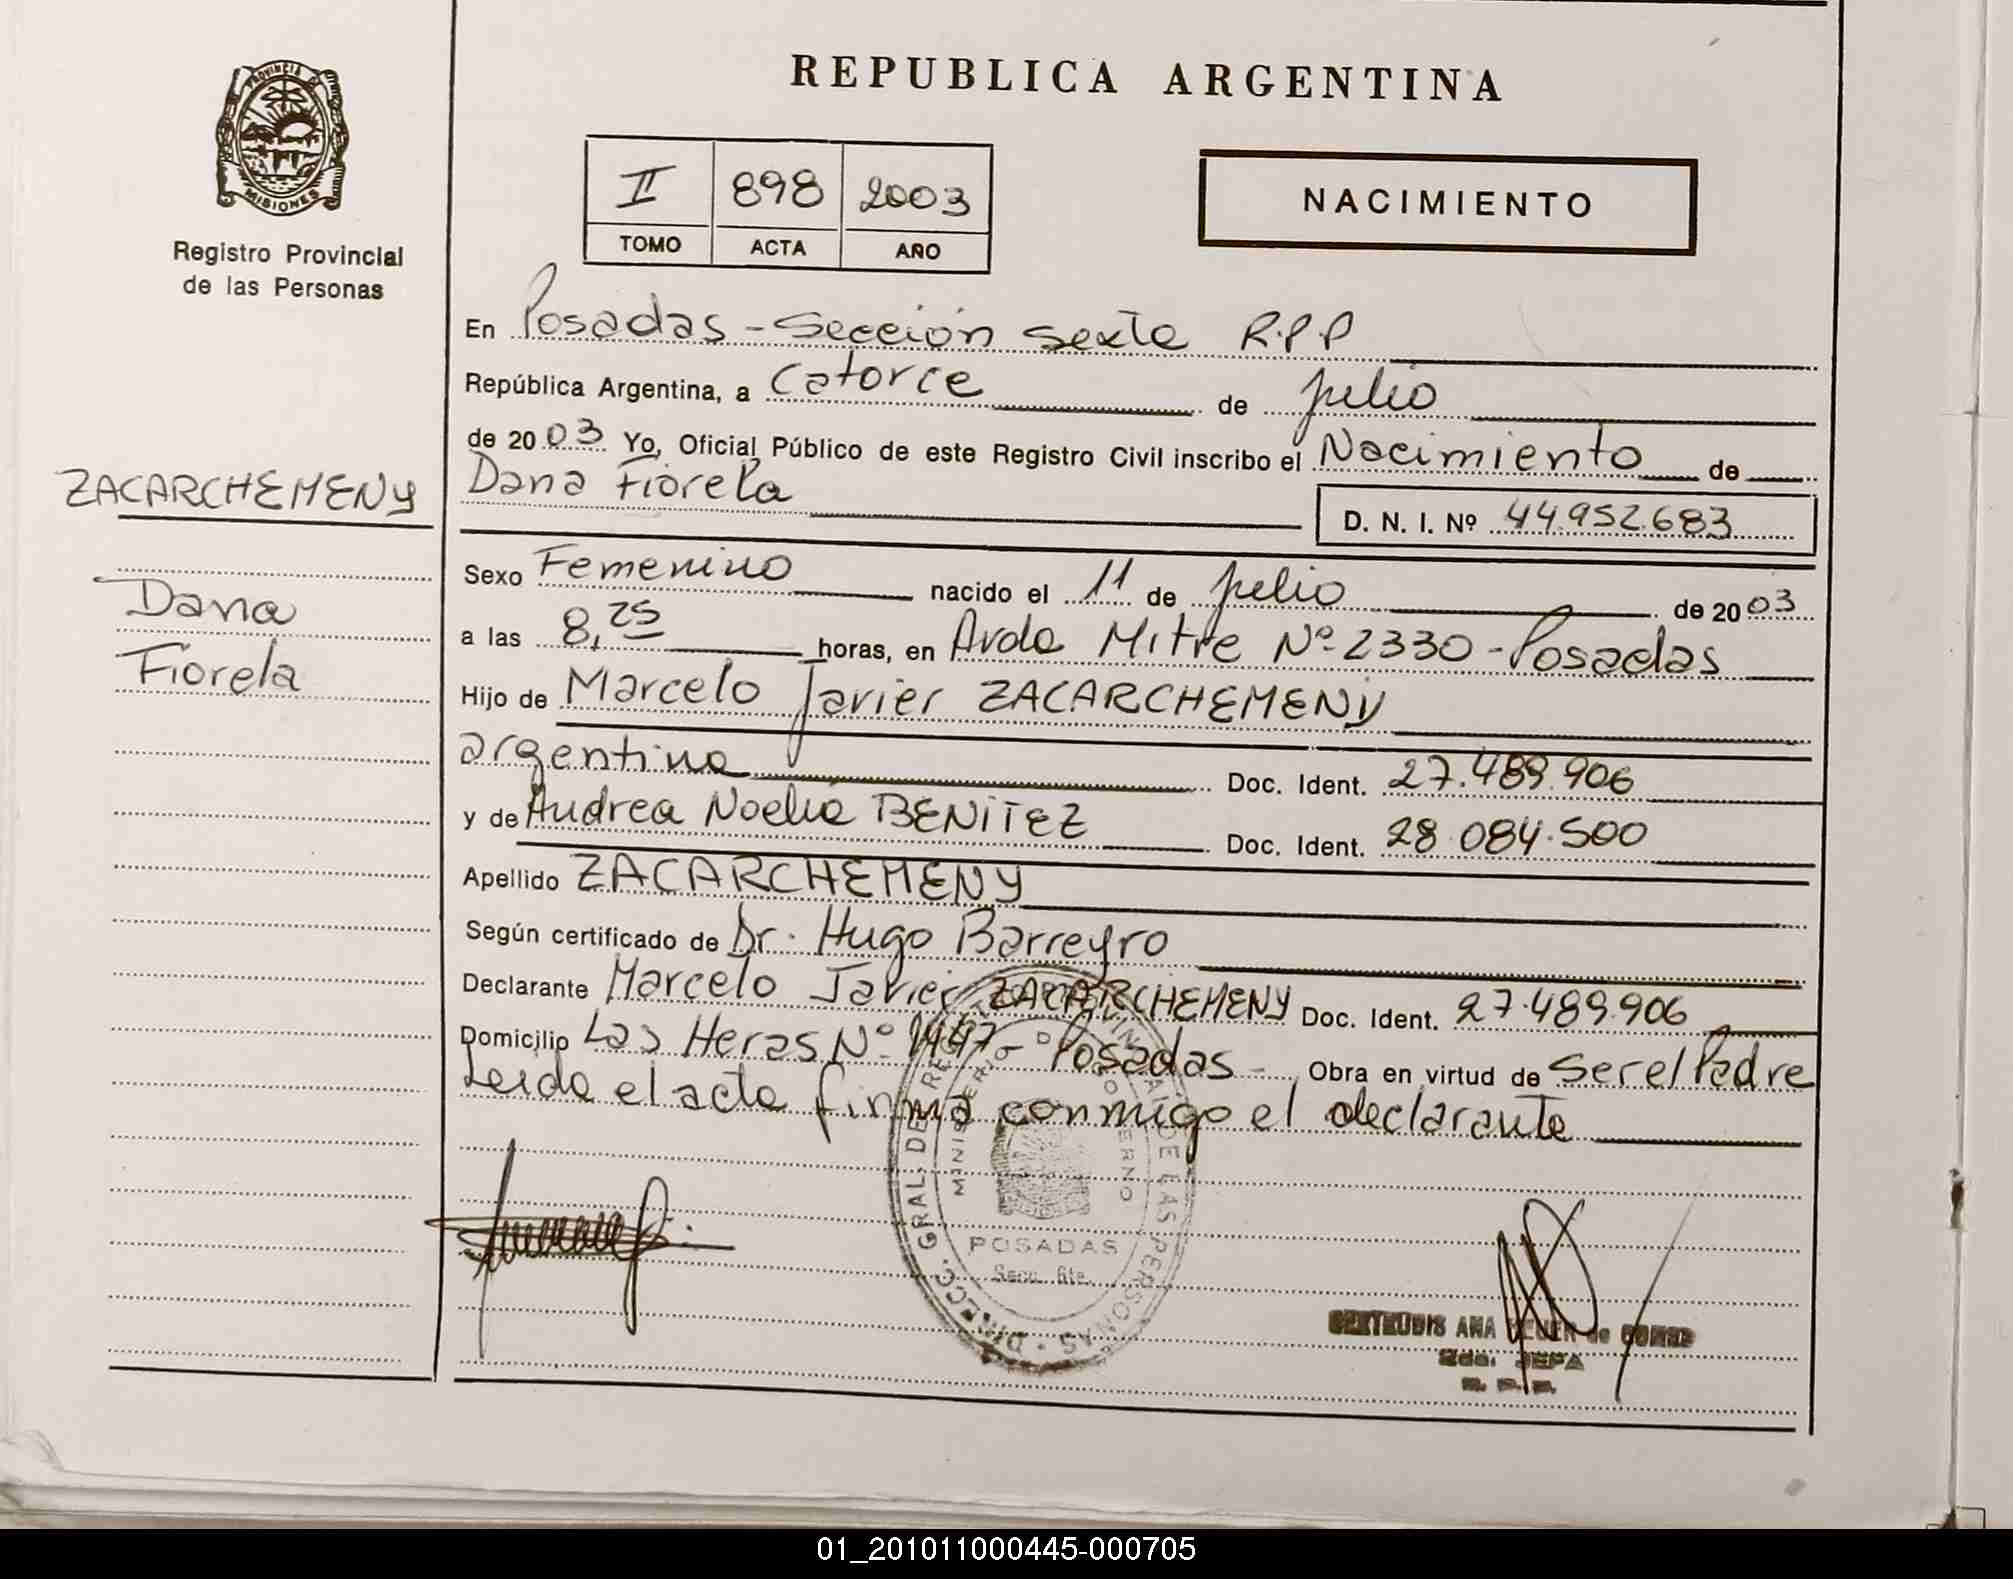 PROVINCIA DE
MISIONES
Registro Provincial
de las Personas
REPUBLICA ARGENTINA
II 898 2003
TOMO ACTA AÑO
NACIMIENTO
En Posadas - Sección Sexta R.P.P
República Argentina, a Catorce de julio
de 2003 Yo, Oficial Público de este Registro Civil inscribo el Nacimiento de
ZACARCHEMENY
Dana Fiorela
D. N. I. Nº 44.952.683
Sexo Femenino nacido el 11 de julio de 2003
Dana
a las 8,25 horas, en Avda Mitre Nº 2330 - Posadas
Fiorela
Hijo de Marcelo Javier ZACARCHEMENY
argentino Doc. Ident. 27.489.906
y de Andrea Noelia BENITEZ Doc. Ident. 28.084.500
Apellido ZACARCHEMENY
Según certificado de Dr. Hugo Barreyro
Declarante Marcelo Javier ZACARCHEMENY Doc. Ident. 27.489.906
Domicilio Las Heras Nº - Posadas - Obra en virtud de Ser el Padre
Leida el acta firma conmigo el declarante
DIRECC. GRAL. DE DE LAS PERSONAS
POSADAS
Secc. 6ta.
GERTRUDIS ANA de
2da. JEFA
01_201011000445-000705